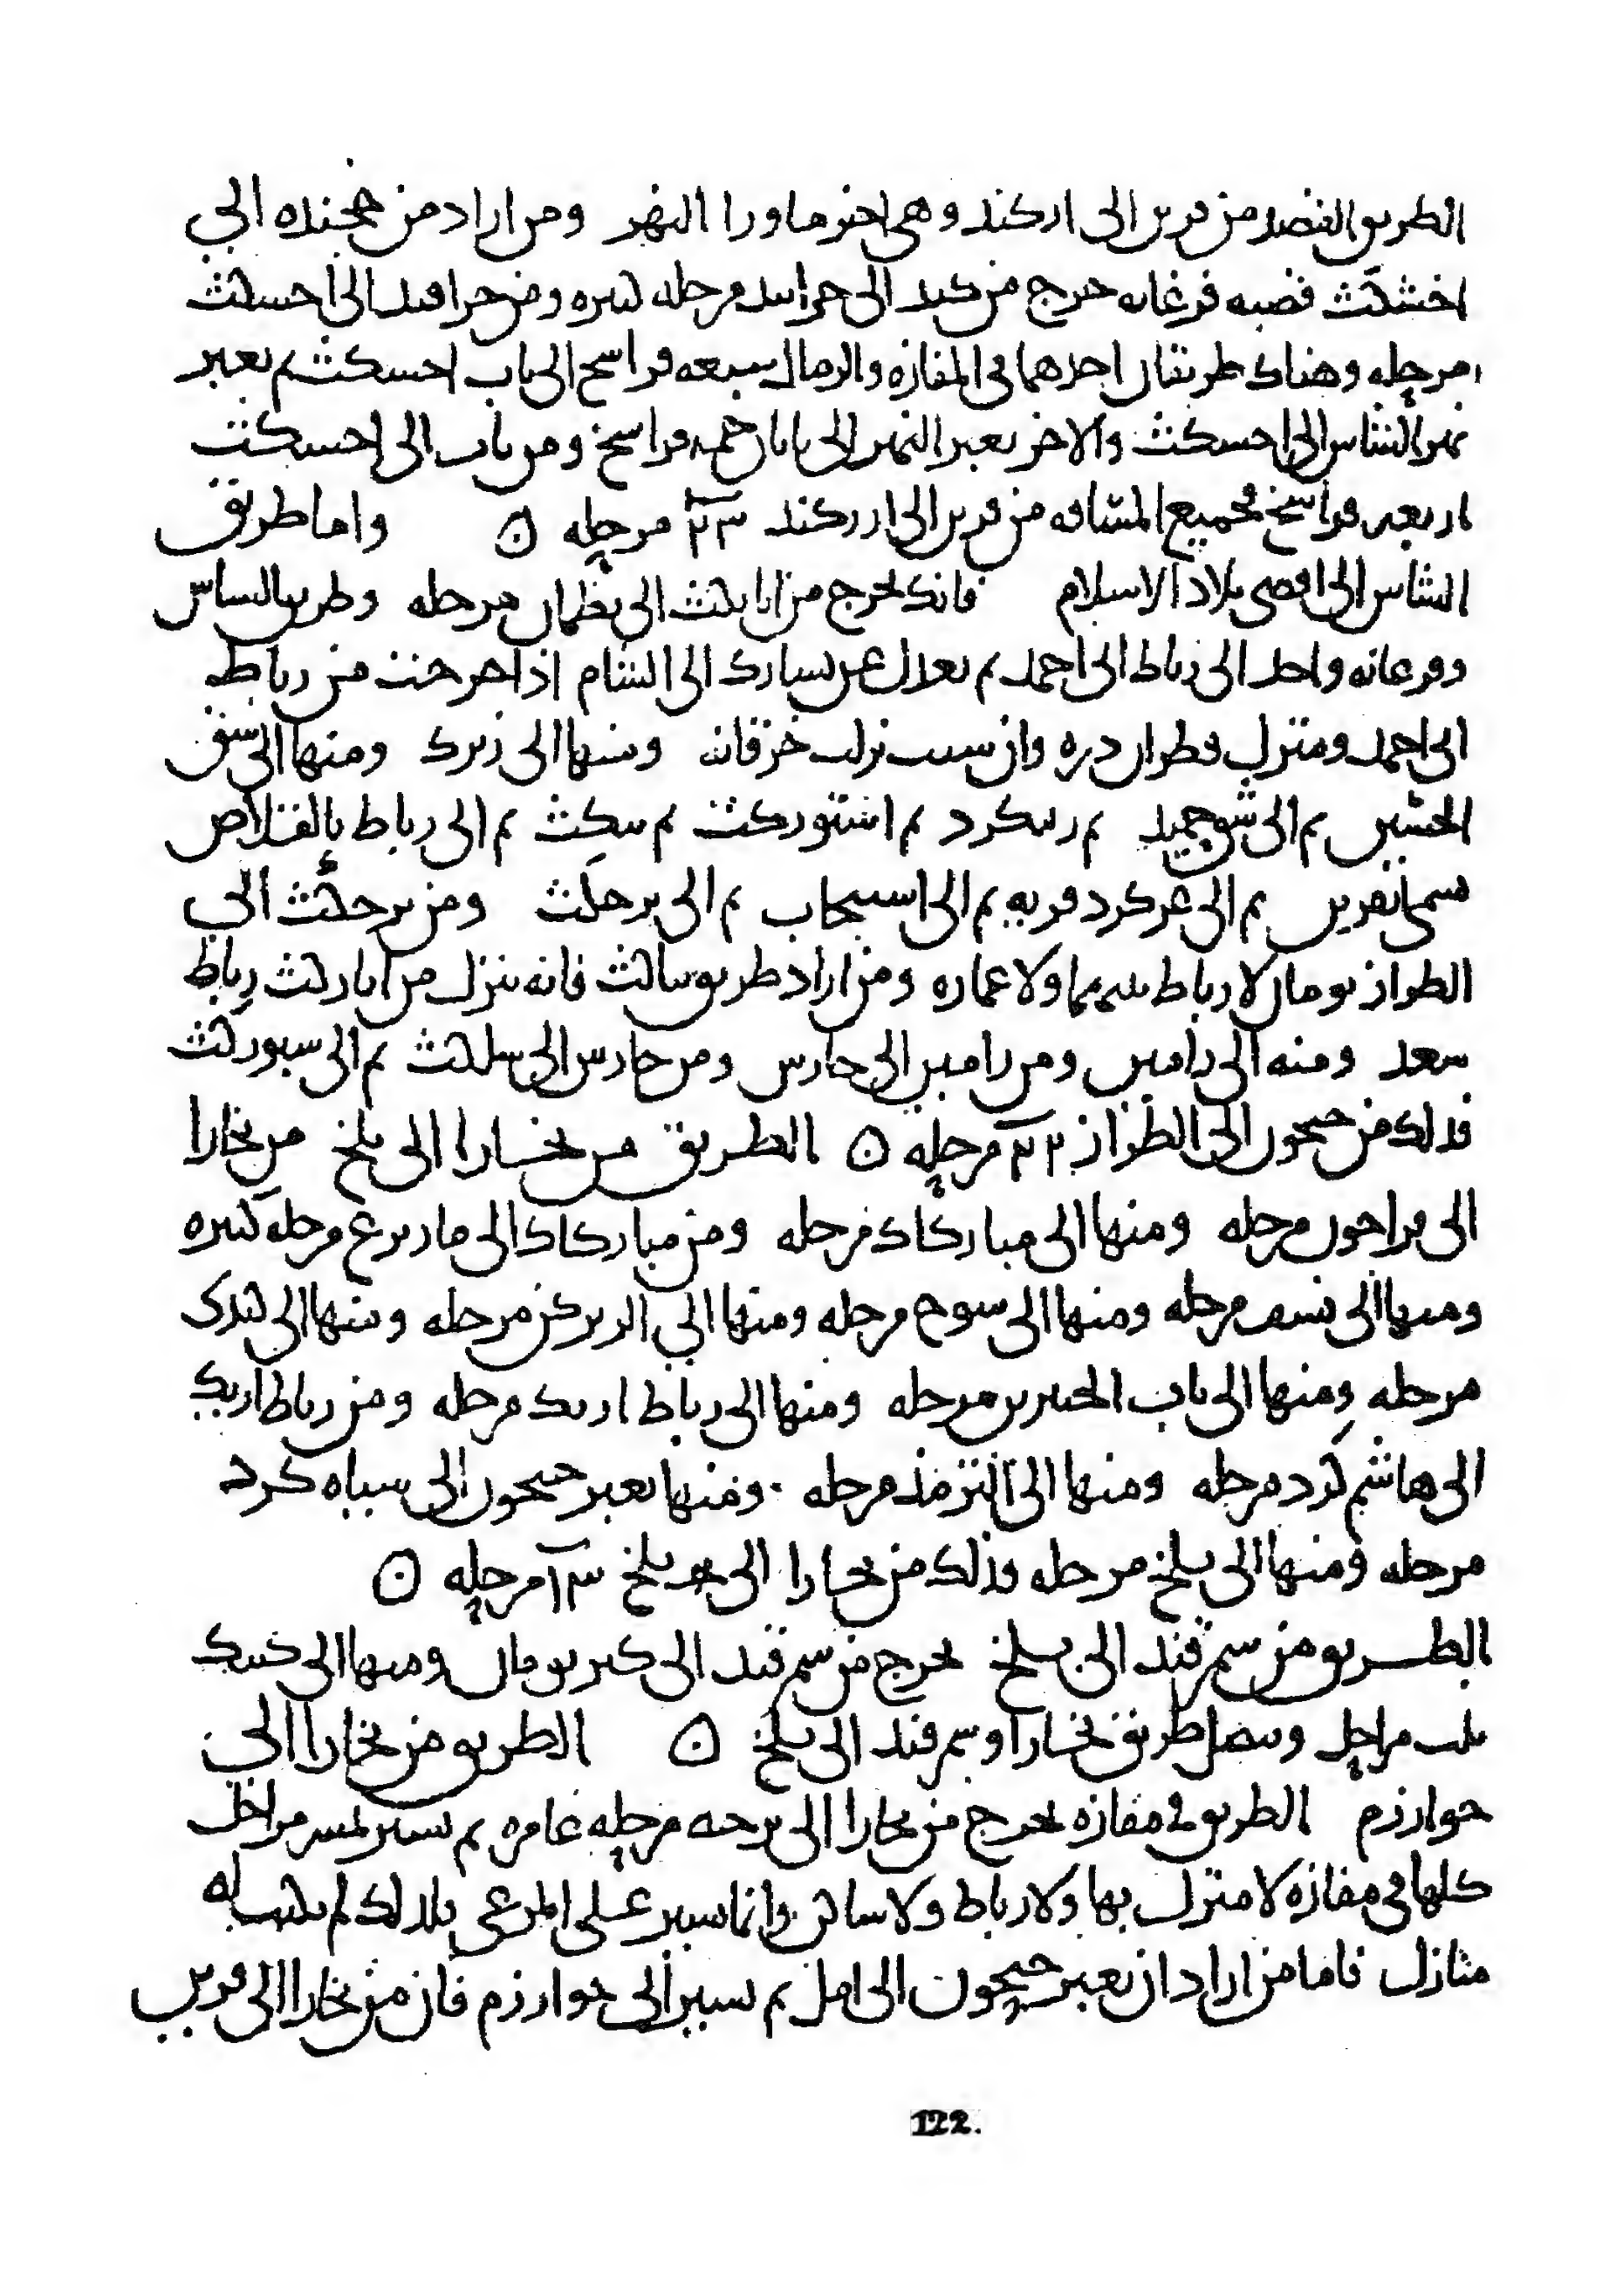 الطريق القصد من فربر الى اركند وهى اخر ماورا النهر ومن اراد من خجنده الى
اخشكث قصبه فرغانه خرج من كند الى مرحله كبيره ومن الى اخسكث
مرحله وهناك طريقان احدهما فى المفازه والرمال سبعه فراسخ الى باب اخسكث ثم يعبر
نهر الشاش الى اخسكث والاخر يعبر النهر الى باب خمسه فراسخ ومن باب الى اخسكث
اربعه فراسخ فجميع المسافه من فربر الى ارركند ٢٣ مرحله ه واما طريق
الشاش الى اقصى بلاد الاسلام فانك تخرج من اباركث الى قطوان مرحله وطريق الشاش
وفرغانه واحد الى رباط ابى احمد ثم تعدل عن يسارك الى الشام اذا خرجت من رباط
ابى احمد ومنزل قطوان دره وان شيت نزلت خرقانه ومنها الى زبرك ومنها الى
الحسين ثم الى ثم ثم اشتوركث ثم بنكث ثم الى رباط بالقلاص
يسمى ثم الى غركرد قريه ثم الى اسبيجاب ثم الى برحكث ومن برحكث الى
الطراز يومان لا رباط بينهما ولا عماره ومن اراد طريق بناكث فانه ينزل من اباركث رباط
سعد ومنه الى زامين ومن زامين الى خاوس ومن خاوس الى بناكث ثم الى ستوركث
فذلك من جيحون الى الطراز ٢٢ مرحله ه الطريق من بخارا الى بلخ من بخارا
الى قراجون مرحله ومنها الى مباركاك مرحله ومن مباركاك الى مايمرغ مرحله كبيره
ومنها الى نسف مرحله ومنها الى سونج مرحله ومنها الى الديركن مرحله ومنها الى كندك
مرحله ومنها الى باب الحديد مرحله ومنها الى رباط ازيك مرحله ومن رباط ازيك
الى هاشم كرد مرحله ومنها الى الترمذ مرحله ومنها يعبر جيحون الى سياه كرد
مرحله ومنها الى بلخ مرحله وذلك من بخارا الى بلخ ١٣ مرحله ه
الطريق من سمرقند الى بلخ تخرج من سمرقند الى كش يومان ومنها الى كندك
ثلث مراحل ويتصل طريق بخارا وسمرقند الى بلخ ه الطريق من بخارا الى
خوارزم الطريق فى مفازه تخرج من بخارا الى مرحله عامره ثم تسير مراحل
كلها فى مفازه لا منزل بها ولا رباط ولا ساكن وانما تسير على المرعى فلذلك لم يكتب له
منازل فاما من اراد ان يعبر جيحون الى امل ثم يسير الى خوارزم فان من بخارا الى فربر
122.